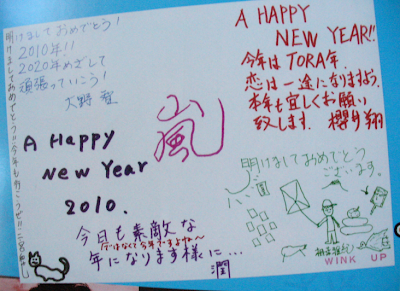 明けましておめでとう!
2010年!!
2020年めざして
頑張っていこう!
大野智
明けましておめでとう!!今年も行こうぜ!!二宮和也
A HAPPY
NEW YEAR!!
今年はTORA年.
恋は一途になりますよう.
本年も宜しくお願い
致します. 櫻井翔
嵐
A Happy
New Year
2010.
今日も素敵な
年になります様に…
潤
明けましておめでとう
ございます。
WINK UP